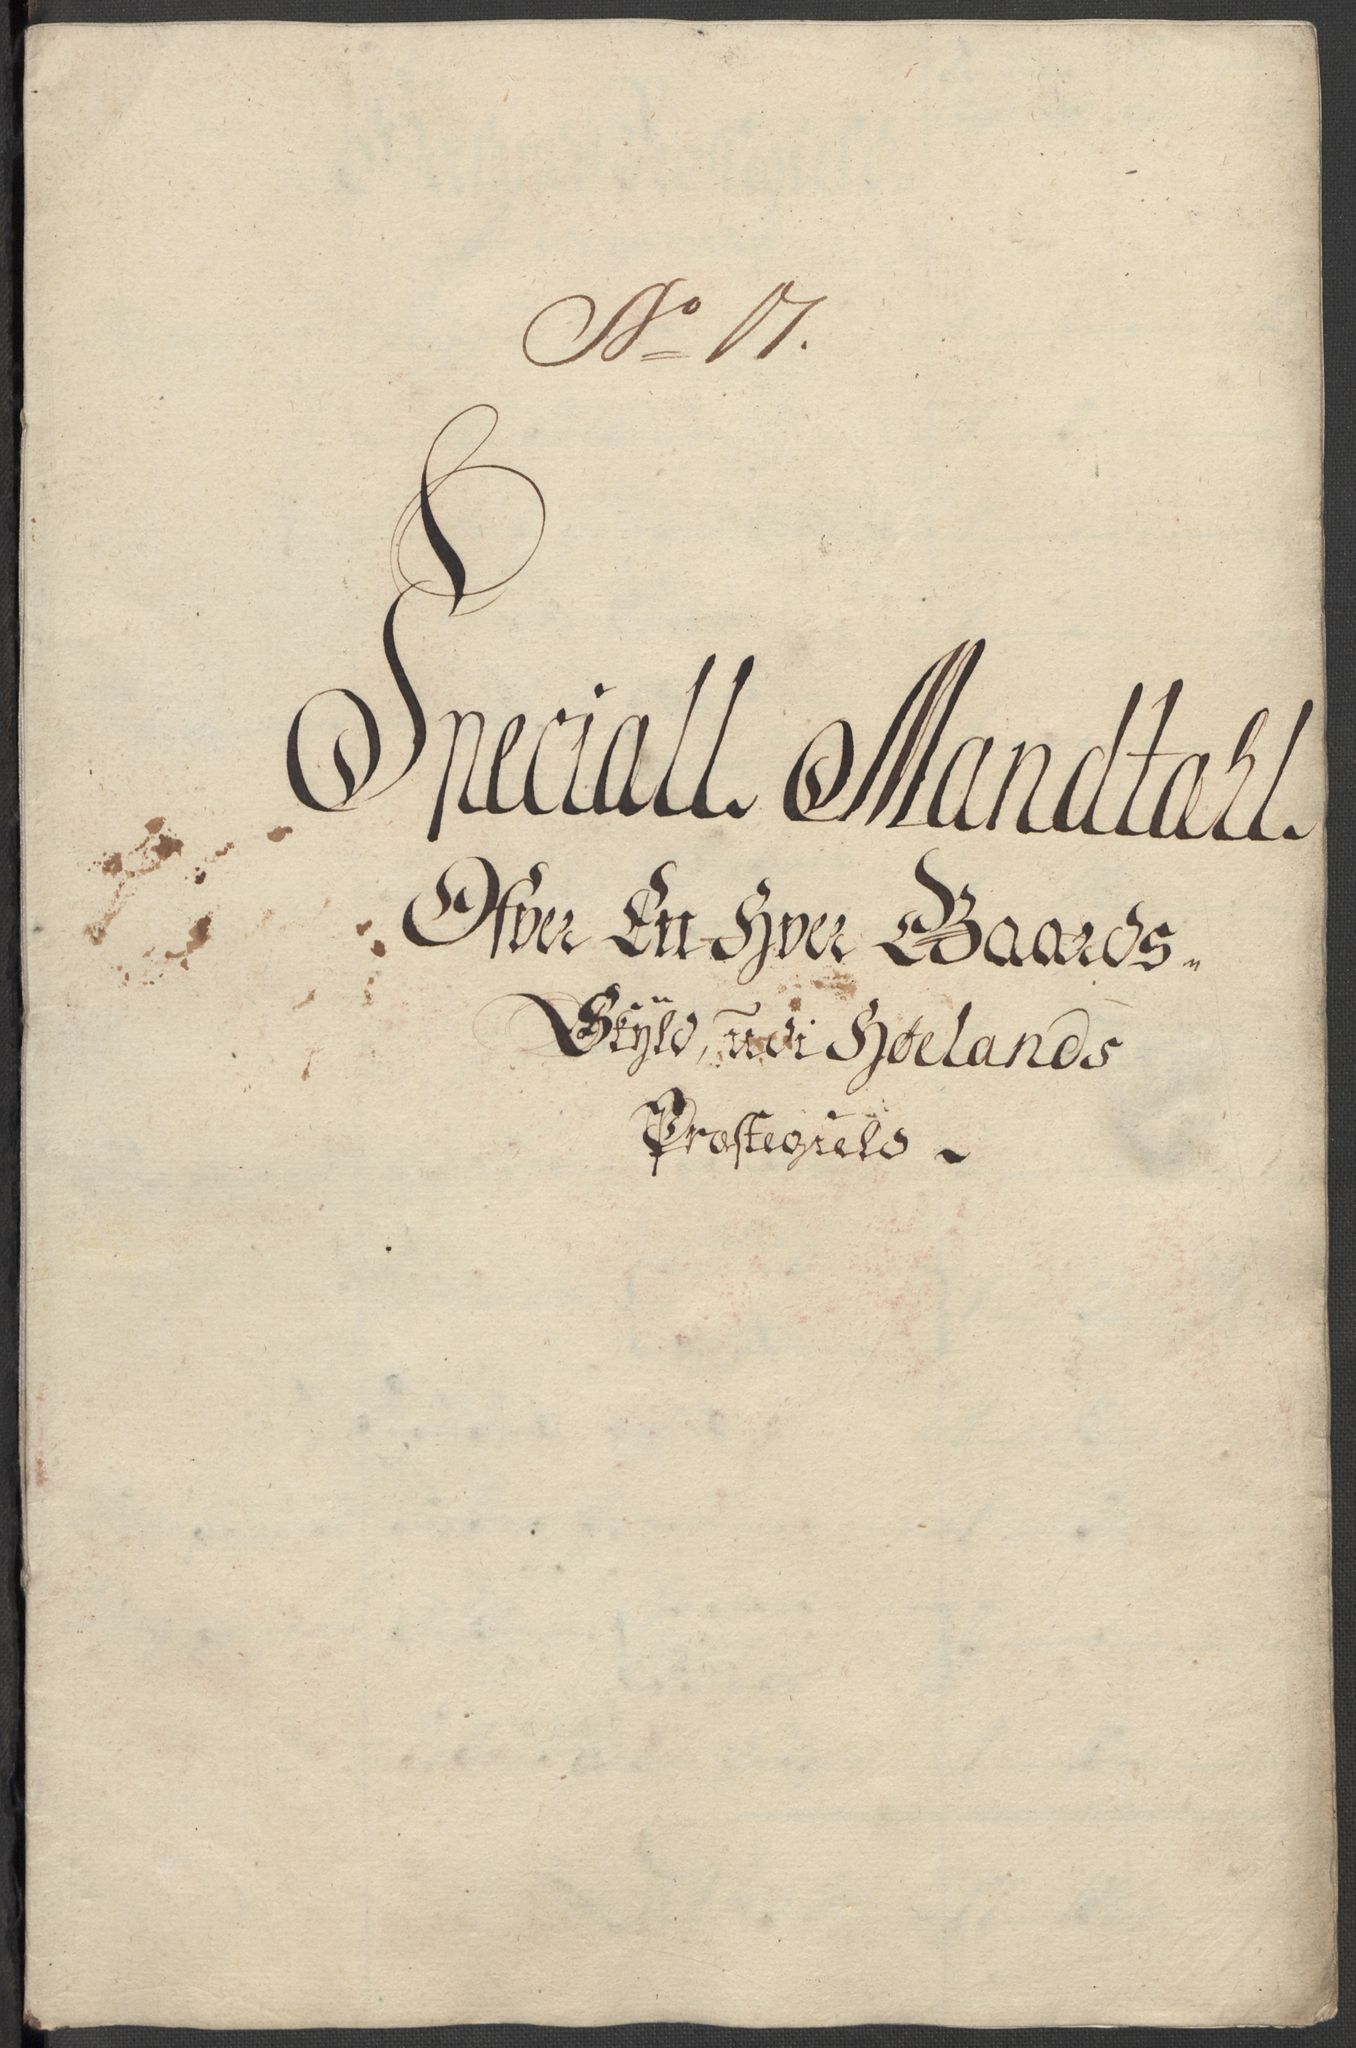 No 17.
Speciall Mandtahl.
Ofver En hver Gaards
Skÿld, udi Høelands
Præstegield